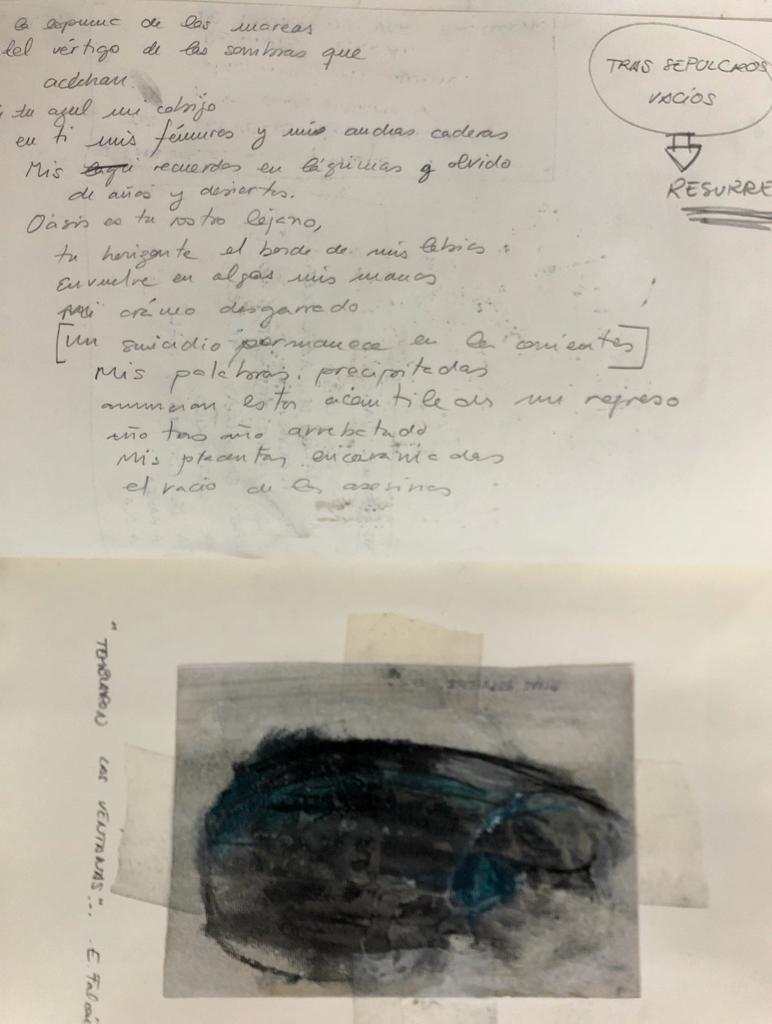 la espuma de las mareas
del vértigo de las sombras que
acechan.
tu azul mi cobijo
en ti mis fémures y mis anchas caderas
Mis recuerdos en lágrimas y olvido
de años y desiertos.
Oasis es tu rostro lejano,
tu horizonte el borde de mis labios
Envuelve en algas mis manos
mi cráneo desgarrado
[Un suicidio permanece en las corrientes]
Mis palabras precipitadas
anuncian estos acantilados mi regreso
año tras año arrebatado
Mis placentas encaramadas
el vacío de las asesinas
TRAS SEPULCROS
VACÍOS
RESURRE
"TEMBLARON LAS VENTANAS"... E. Falcó